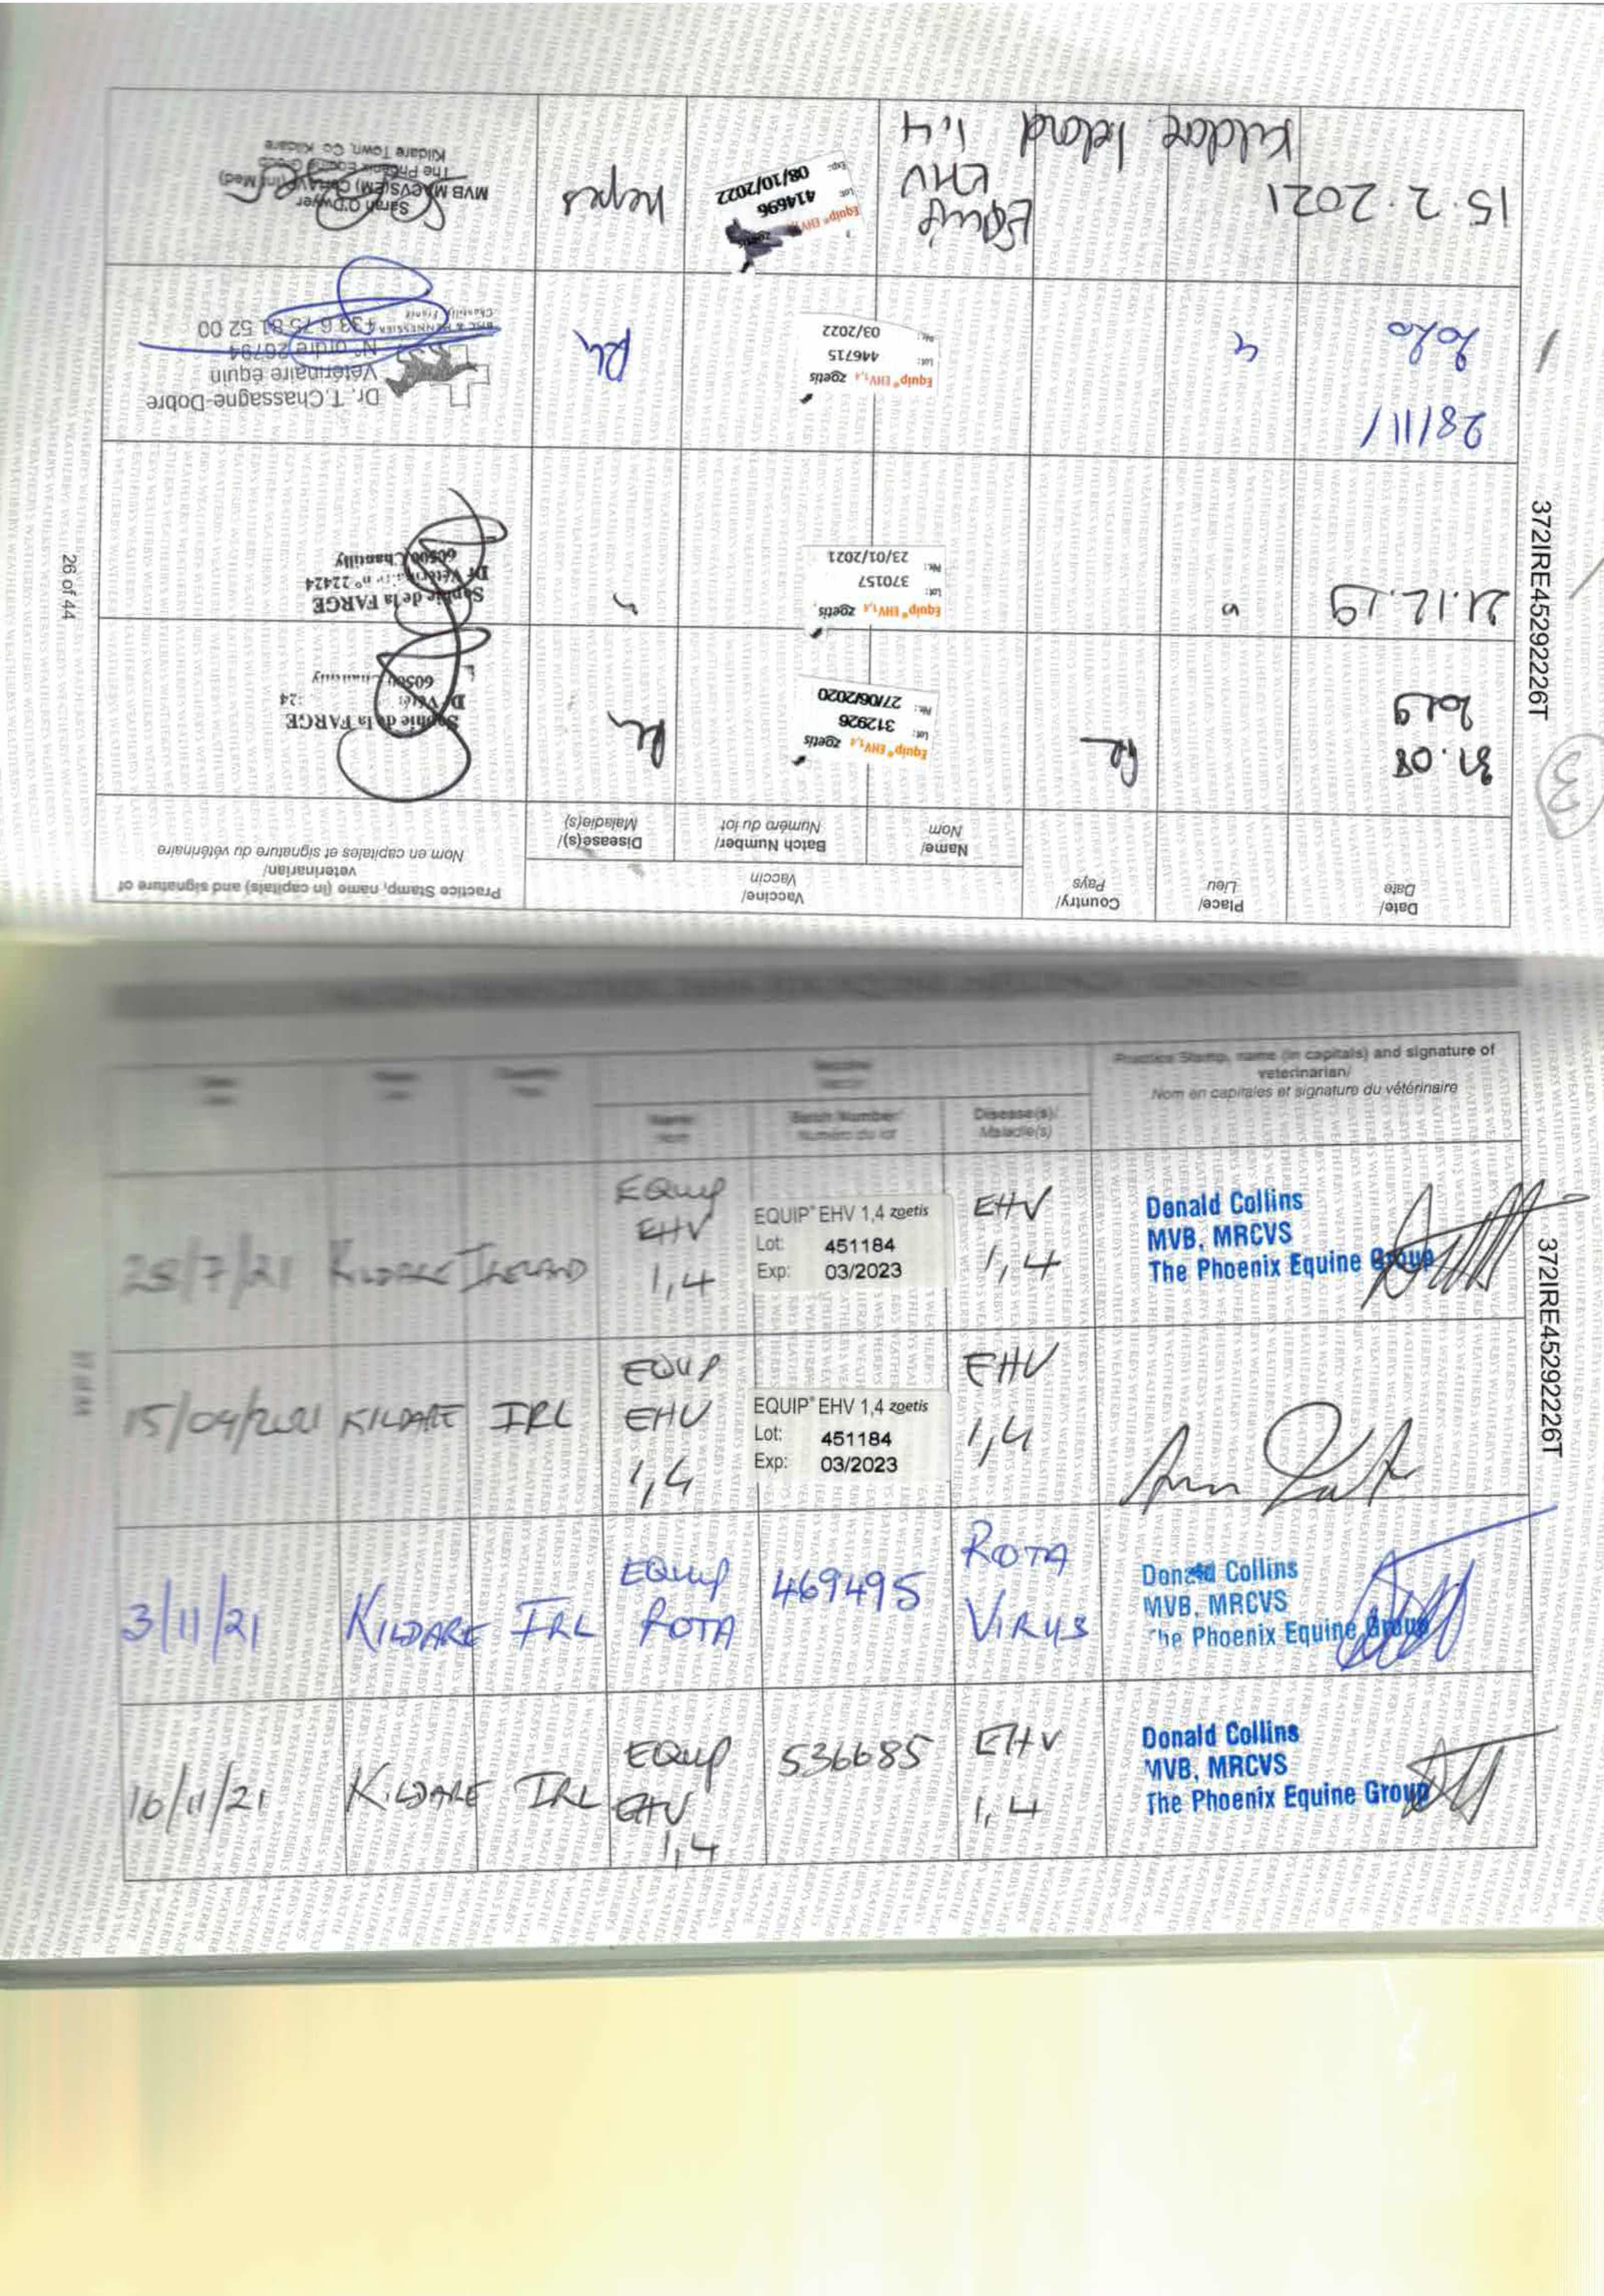 Date/
Date
Place/
Lieu
Country/
Pays
Vaccine/
Vaccin
Name/
Nom
Batch Number/
Numéro du lot
Disease(s)/
Maladie(s)
Practice Stamp, name (in capitals) and signature of
veterinarian/
Nom en capitales et signature du vétérinaire
31.08
2019
Equip® EHV1,4 zoetis
Lot: 312926
27/06/2020
Rh
Sophie de la FARGE
21.12.19
Equip® EHV1,4 zoetis
Lot: 370157
23/01/2021
Sophie de la FARGE
Dr Vétérinaire n° 22424
60500 Chantilly
28/11/
2020
Equip® EHV1,4 zoetis
Lot: 446715
03/2022
Rh
Dr. T.Chassagne-Dobre
Vétérinaire équin
N° ordre 26794
+33 6 75 81 52 00
Chantilly, France
15.2.2021
Kildare Ireland
Equip
EHV
1,4
Equip® EHV
Lot: 414696
Exp: 08/10/2022
Herpes
Sarah O'Dwyer
The Phoenix Equine Group
Kildare Town, Co. Kildare
372IRE45292226T
3
26 of 44
Practice Stamp, name (in capitals) and signature of
veterinarian/
Nom en capitales et signature du vétérinaire
Name/
Nom
Batch Number/
Numéro du lot
Disease(s)/
Maladie(s)
25/7/21 KILDARE IRELAND
EQuip
EHV
1,4
EQUIP® EHV 1,4 zoetis
Lot: 451184
Exp: 03/2023
EHV
1,4
Donald Collins
MVB, MRCVS
The Phoenix Equine Group
15/04/2021 KILDARE IRL
EQUIP
EHV
1,4
EQUIP® EHV 1,4 zoetis
Lot: 451184
Exp: 03/2023
EHV
1,4
3/11/21 KILDARE IRL
EQuip
ROTA
469495
ROTA
VIRUS
Donald Collins
MVB, MRCVS
The Phoenix Equine Group
16/11/21 KILDARE IRL
EQuip
EHV
1,4
536685
EHV
1,4
Donald Collins
MVB, MRCVS
The Phoenix Equine Group
372IRE45292226T